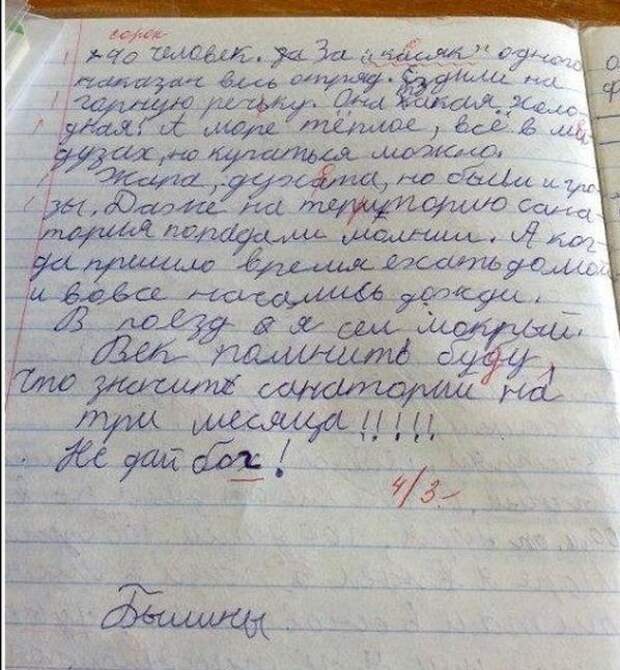 сорок
40 человек. За „касяк" одного
наказан весь отряд. Ездили на
горную речьку. Она такая холо-
дная! А море тёплое, всё в ме-
дузах, но купаться можно.
Жара, духота, но были и гро-
зы. Даже на территорию сана-
тория попадали молнии. А ког-
да пришло время ехать домой
и вовсе начались дожди.
В поезд я сел мокрый.
Век помнить буду,
что значить санаторий на
три месяца!!!!!
Не дай бох!
4/3-
Былины